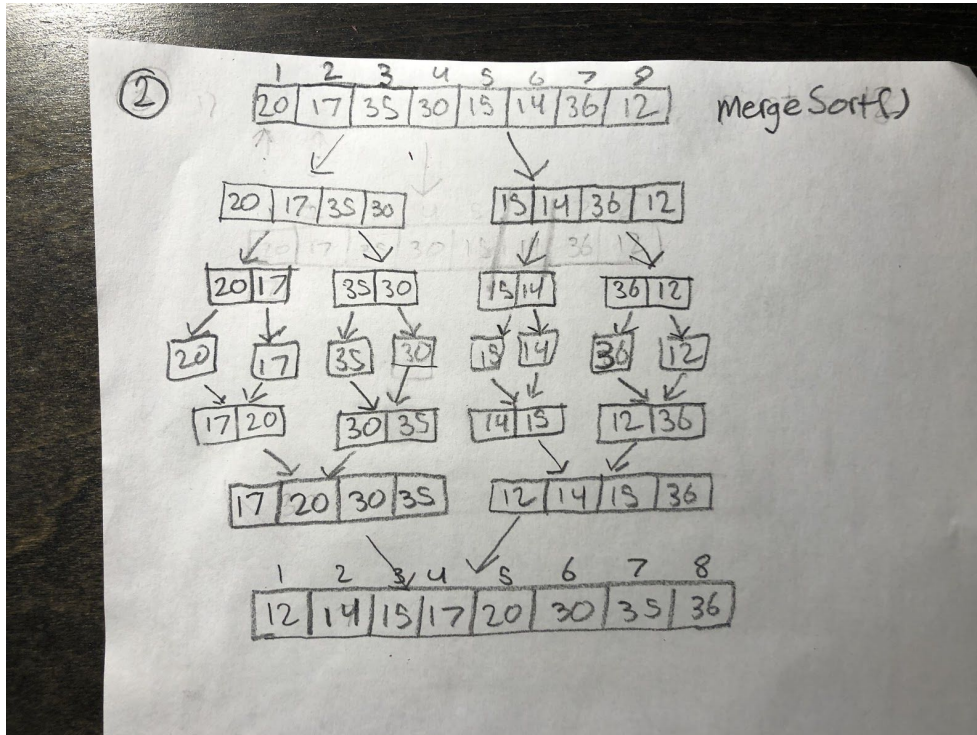 1 2 3 4 5 6 7 8
② 20 17 35 30 15 14 36 12 mergeSort()
20 17 35 30 15 14 36 12
20 17 35 30 15 14 36 12
20 17 35 30 15 14 36 12
17 20 30 35 14 15 12 36
17 20 30 35 12 14 15 36
1 2 3 4 5 6 7 8
12 14 15 17 20 30 35 36